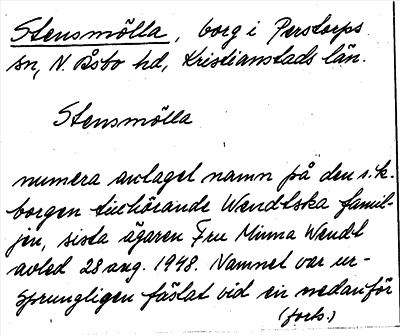 Stensmölla, borg i Perstorps
sn, N. Åsbo hd, Kristianstads län.
Stensmölla
numera avlaget namn på den s.k.
borgen tillhörande Wendtska famil-
jen, sista ägaren Fru Minna Wendt
avled 28 aug. 1948. Namnet var ur-
sprungligen fäslat vid en nedanför
(forts.)